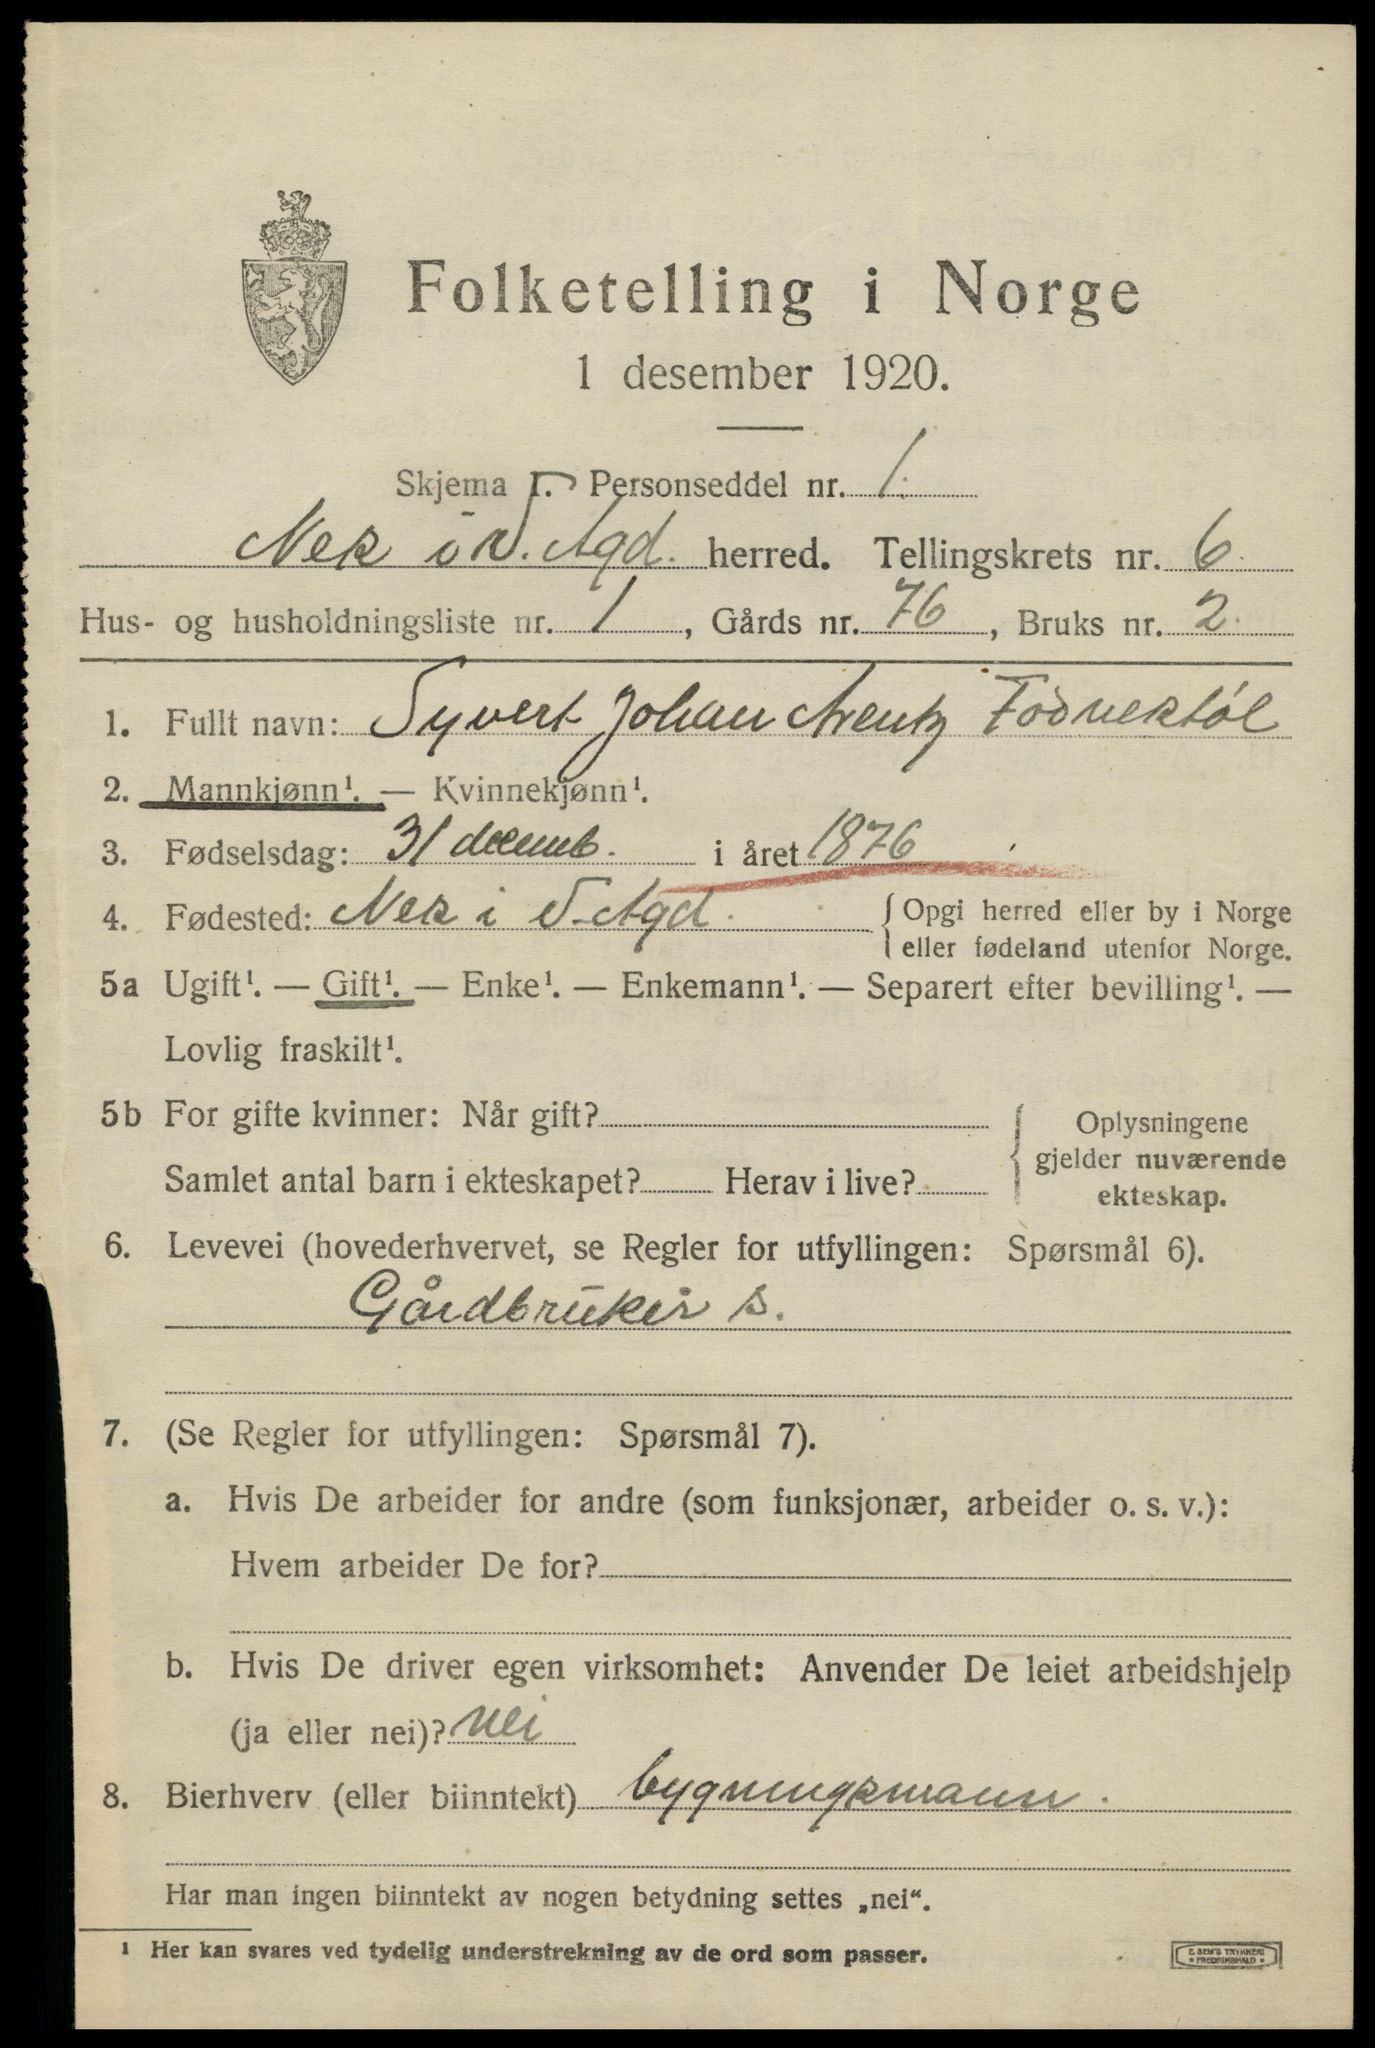 Folketelling i Norge
1 desember 1920.
Skjema I. Personseddel nr. 1.
Nes i V. Agd. herred. Tellingskrets nr. 6.
Hus- og husholdningsliste nr. 1, Gårds nr. 76, Bruks nr. 2.
1. Fullt navn: Syvert Johan Arentz
2. Mannkjønn¹. — Kvinnekjønn¹.
3. Fødselsdag: 31 decemb. i året 1876
4. Fødested: Nes i V. Agd. { Opgi herred eller by i Norge
eller fødeland utenfor Norge.
5a Ugift¹. — Gift¹. — Enke¹. — Enkemann¹. — Separert efter bevilling¹. —
Lovlig fraskilt¹.
5b For gifte kvinner: Når gift?
Samlet antal barn i ekteskapet? Herav i live?
{ Oplysningene
gjelder nuværende
ekteskap.
6. Levevei (hovederhvervet, se Regler for utfyllingen: Spørsmål 6).
Gårdbruker s.
7. (Se Regler for utfyllingen: Spørsmål 7).
a. Hvis De arbeider for andre (som funksjonær, arbeider o. s. v.):
Hvem arbeider De for?
b. Hvis De driver egen virksomhet: Anvender De leiet arbeidshjelp
(ja eller nei)? nei
8. Bierhverv (eller biinntekt) bygningsmann.
Har man ingen biinntekt av nogen betydning settes „nei“.
¹ Her kan svares ved tydelig understrekning av de ord som passer.
E. SEM'S TRYKKERI
* FREDRIKSHALD *